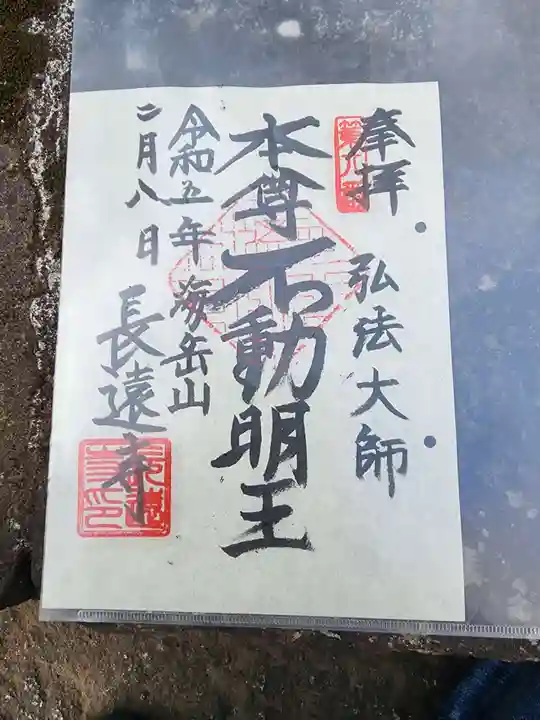 奉拝
弘法大師
本尊不動明王
令和五年
二月八日
海岳山
長遠寺